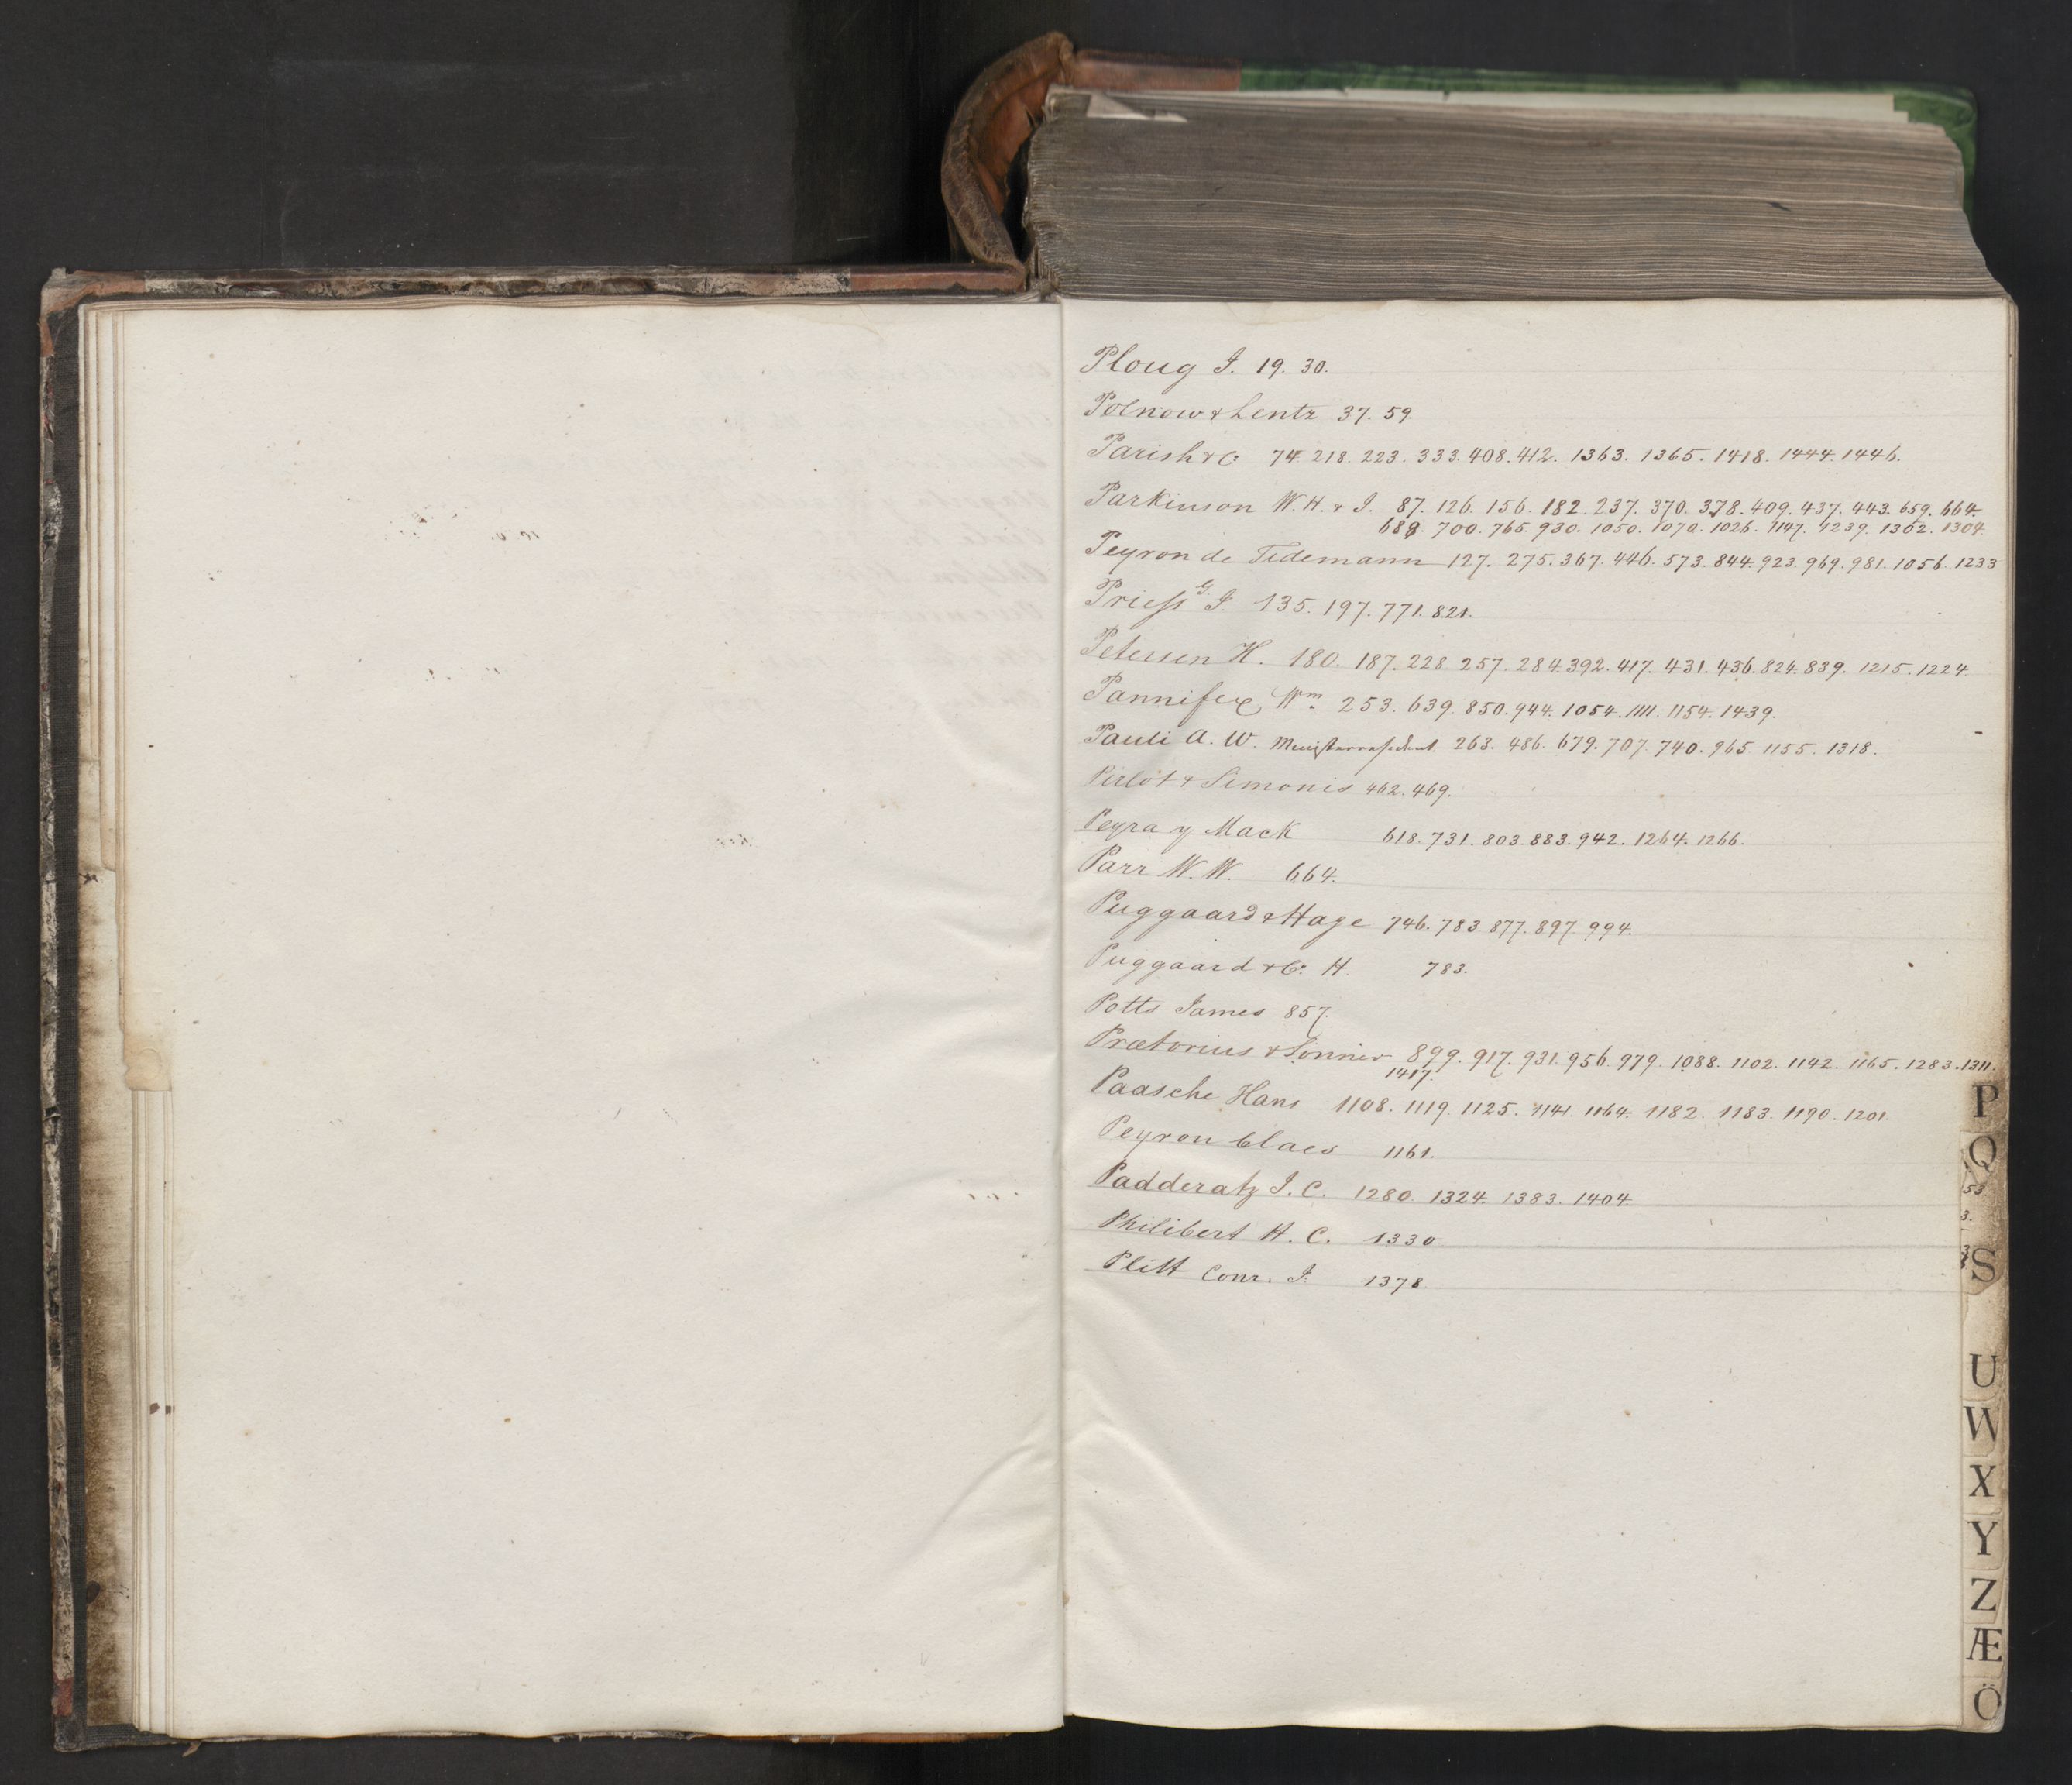 Ploug J. 19. 30.
Polnow & Lentz 37. 59.
Parish & Co 74. 218. 223. 333. 408. 412. 1363. 1365. 1418. 1444. 1446.
Parkinson W. H. & J. 87. 126. 156. 182. 237. 370. 378. 409. 437. 443. 659. 664.
688. 700. 765. 930. 1050. 1070. 1026. 1147. 1239. 1302. 1304.
Peyron de Tedemann 127. 275. 367. 446. 573. 844. 923. 969. 981. 1056. 1233
Priess G. J. 135. 197. 771. 821.
Petersen H. 180. 187. 228. 257. 284. 392. 417. 431. 436. 824. 839. 1215. 1224
Pannifex Wm. 253. 639. 850. 944. 1054. 1111. 1154. 1439.
Pauli A. W. Ministerresident 263. 486. 679. 707. 740. 965. 1155. 1318.
Pirlot & Simonis 462. 469.
Peyra y Mack 618. 731. 803. 883. 942. 1264. 1266.
Parr W. W. 664.
Puggaard & Hage 746. 783. 877. 897. 994.
Puggaard & Co: H. 783.
Potts James 857.
Prætorius & Sönner 899. 917. 931. 956. 979. 1088. 1102. 1142. 1165. 1283. 1311.
1417.
Paasche Hans 1108. 1119. 1125. 1141. 1164. 1182. 1183. 1190. 1201.
Peyron Claes 1161.
Padderatz J. C. 1280. 1324. 1383. 1404
Philibert H. C. 1330
Plitt Conr. J. 1378
P
Q
S
U
W
X
Y
Z
Æ
Ö